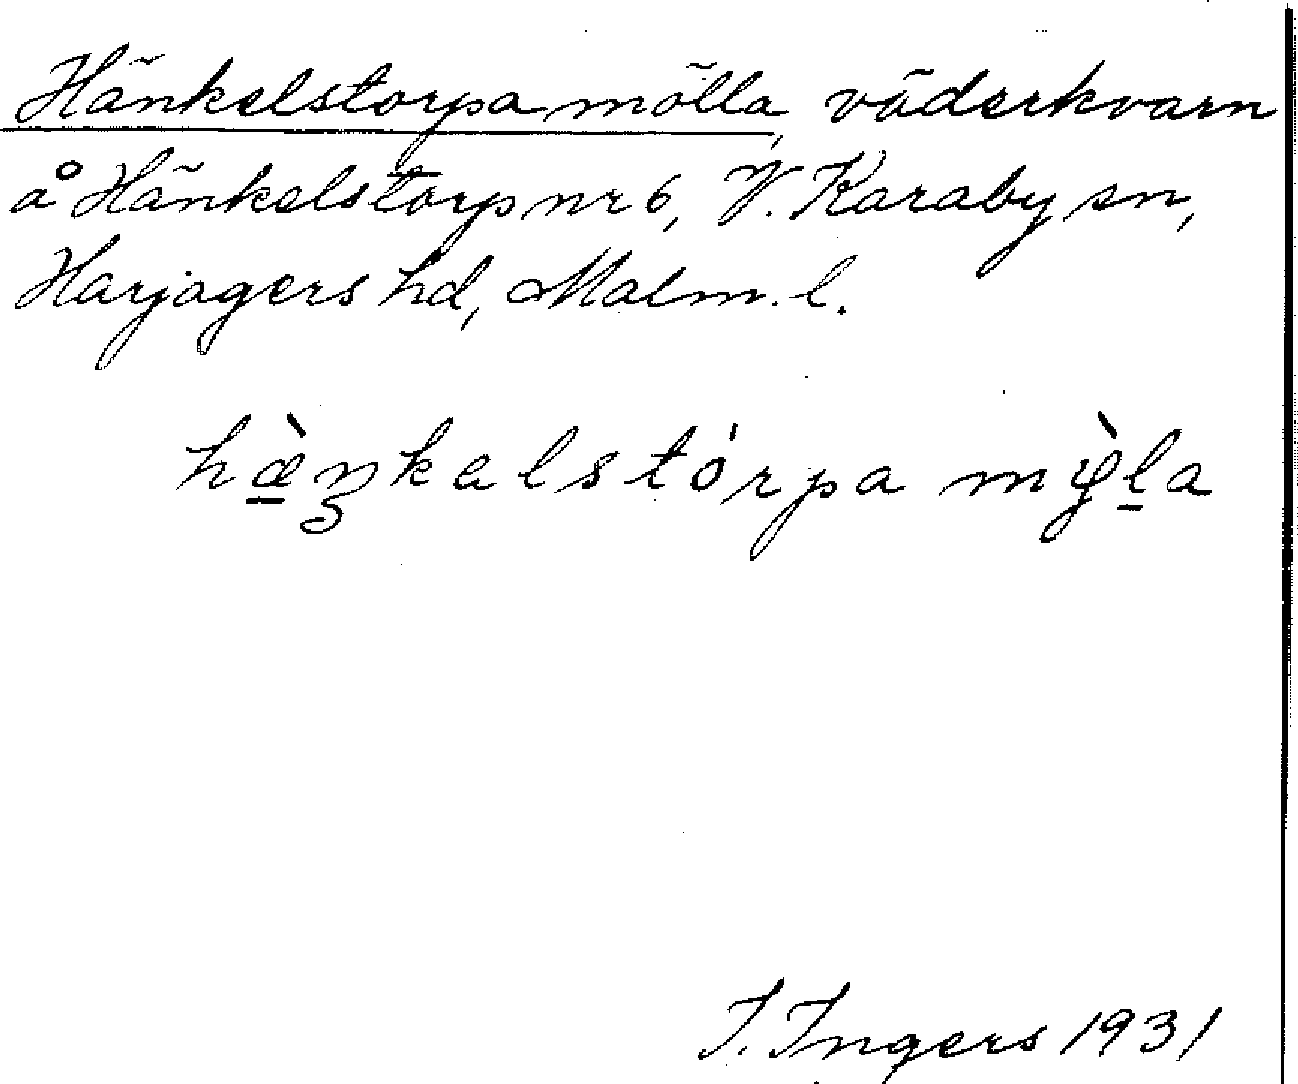 Hänkelstorpa mölla, väderkvarn
å Hänkelstorp nr 6, V. Karaby sn,
Harjagers hd, Malm. l.
hæ̀ŋkelstȯrpa mỳla
I. Ingers 1931